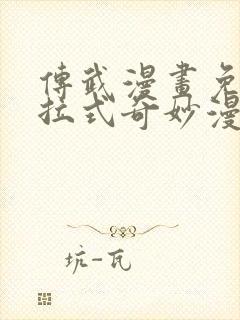 傳武漫畫免
拉式奇妙漫
坑-瓦